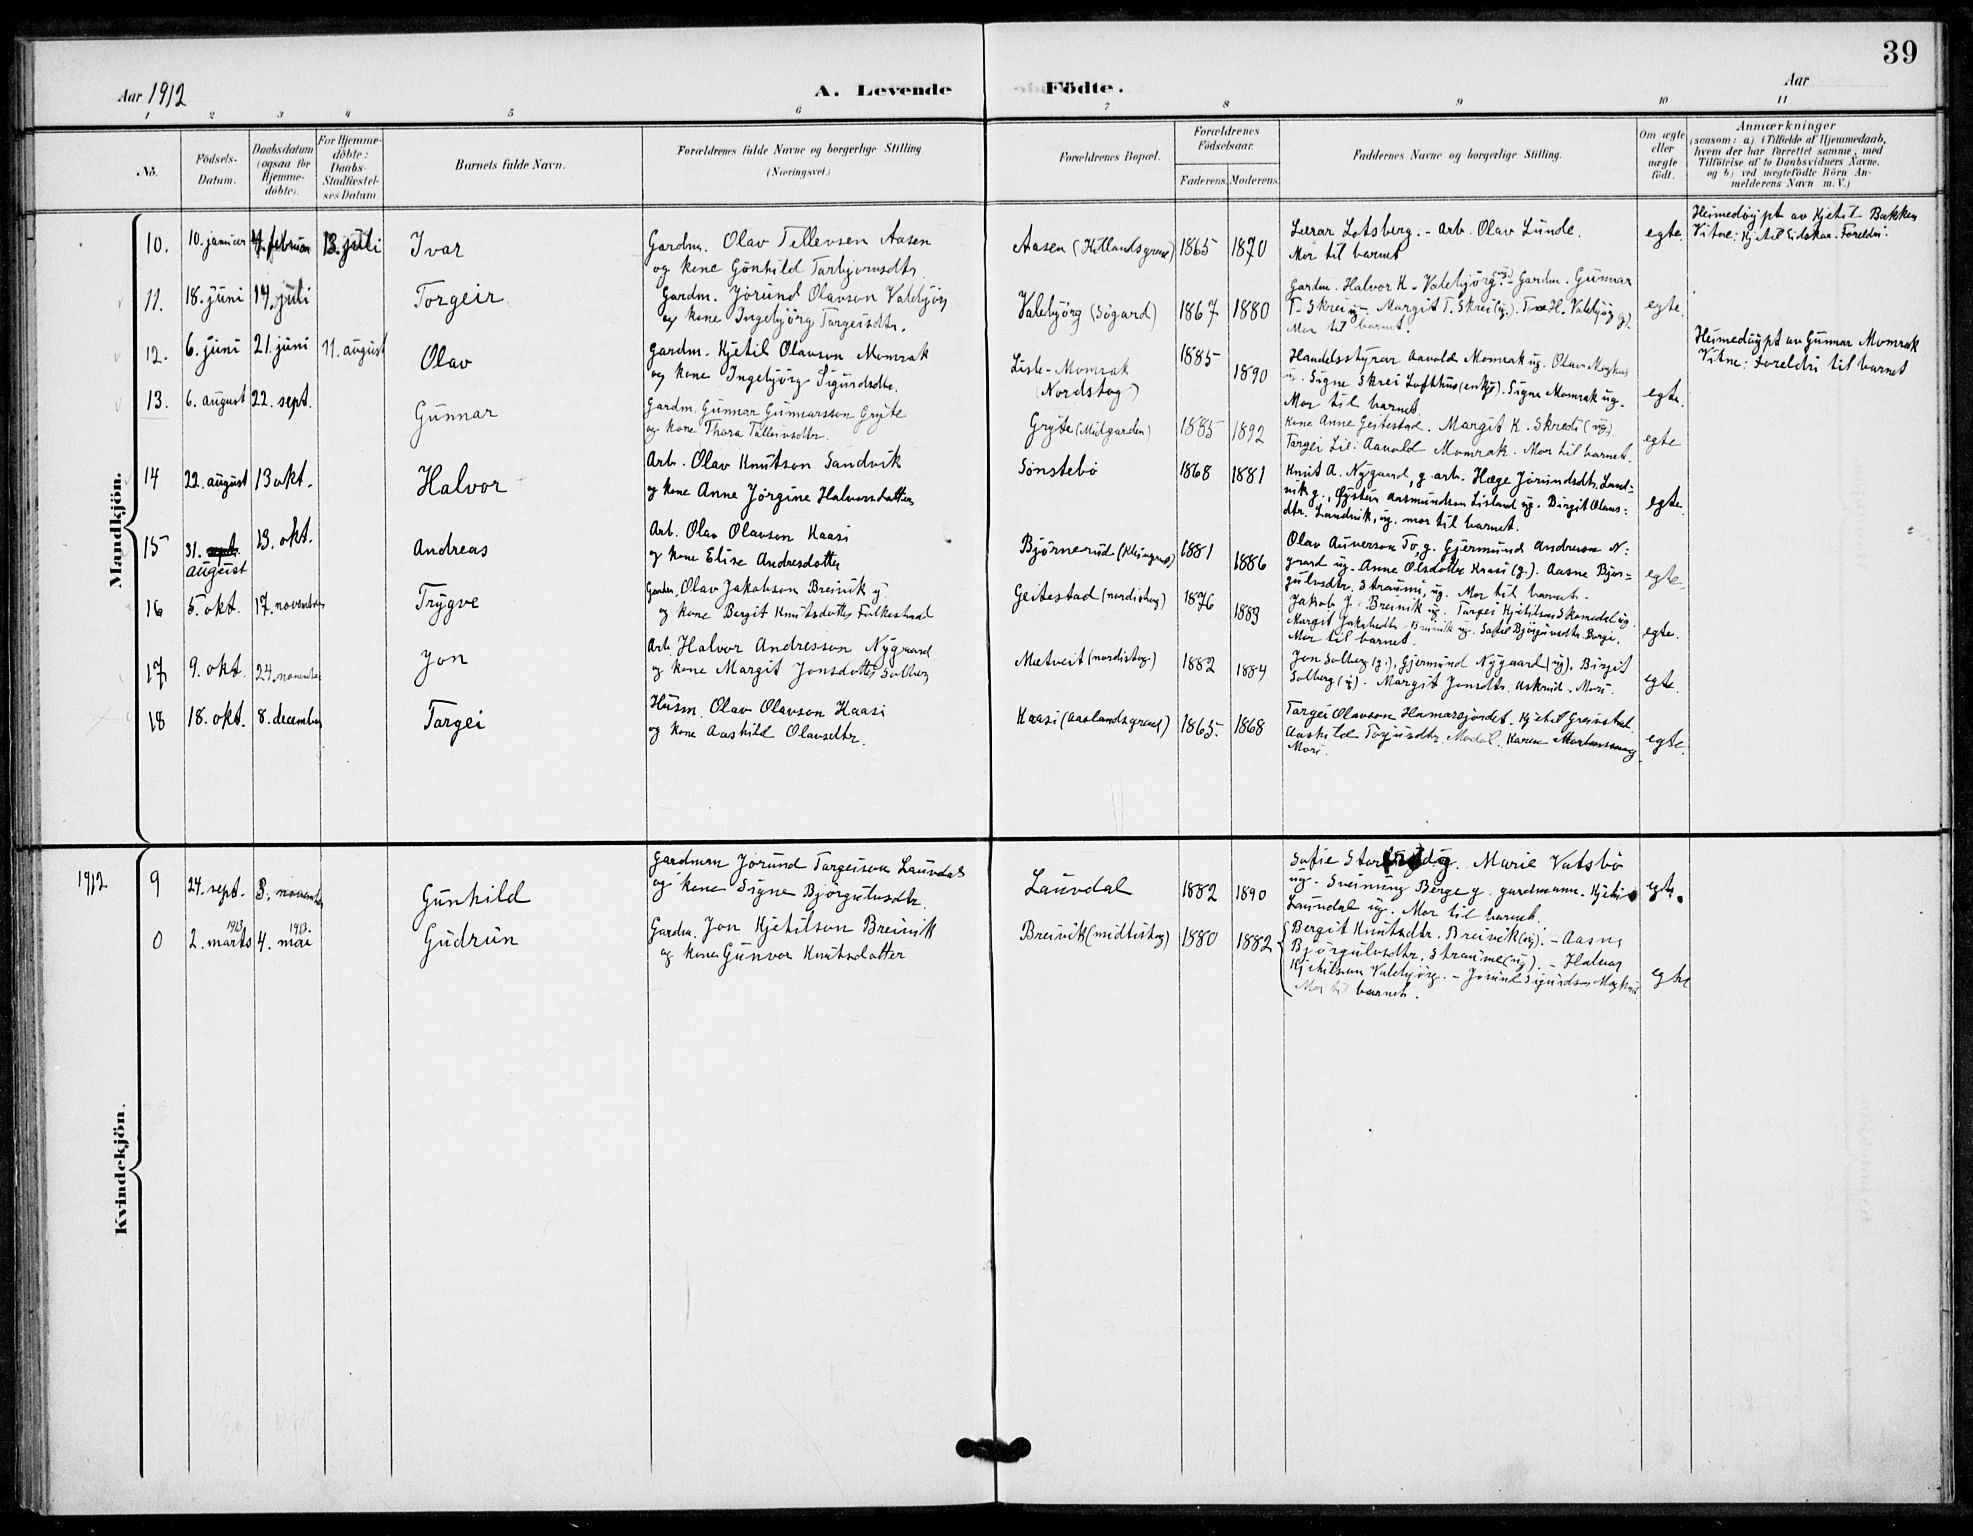 39
Aar 1912
A. Levende
Födte.
Aar
1 2 3 4 5 6 7 8 9 10 11
No.
Födsels-
Datum.
Daabsdatum
(ogsaa for
Hjemme-
döbte).
For Hjemme-
döbte:
Daabs-
Stadfæstel-
ses Datum
Barnets fulde Navn.
Forældrenes fulde Navne og borgerlige Stilling
(Næringsvei.)
Forældrenes Bopæl.
Forældrenes
Födselsaar.
Faderens. Moderens.
Faddernes Navne og borgerlige Stilling.
Om ægte
eller
uægte
födt.
Anmærkninger
(saasom: a) i Tilfælde af Hjemmedaab,
hvem der har forrettet samme, med
Tilföielse af to Daabsvidners Navne.
og b) ved uægtefödte Börn An-
melderens Navn m. V.)
Mandkjön.
10. 10. januar 4. februar 13. juli Ivar
Gardm. Olav Tellevsen Aasen
og kone Gönhild Tarbjörnsdtr.
Aasen 1865 1870
Lærar Lotsberg. - Arb. Olav Lunde.
Mor til barnet
egte.
Heimedöypt av Kjetil Bakken
Vitne: Kjetil Eidskar. Foreldri.
11. 18. juni 14. juli Torgeir
Gardm. Jörund Olavson Valebjörg
og kone Ingebjörg Targeisdtr.
Valebjörg (Sögard) 1867 1880
Gardm. Halvor K. Valebjörg (ug.) - Gardm. Gunnar
T. Skrei ug - Margit T. Skrei (ug). Tone H. Valebjörg (g).
Mor til barnet.
egte.
12. 6. juni 21. juni 11. august Olav
Gardm. Kjetil Olavson Momrak
og kone Ingebjörg Sigurdsdtr.
Lisle-Momrak
(Nordstog)
1885 1890
Handelsstyrar Aavold Momrak ug. Olav
ug. Signe Skrei Lofthus (enkja). Signe Momrak ug.
Mor til barnet.
egte.
Heimedöypt av Gunnar Momrak
Vitne: Foreldri til barnet
13. 6. august 22. sept. Gunnar
Gardm. Gunnar Gunnarsson Gryte
og kone Thora Talleivsdtr.
Gryte (Midgarden) 1885 1892
Kone Anne Geitestad. Margit K. Skredi (ug).
Targei Lid. Aavold Momrak. Mor til barnet.
egte
14 22. august 13 okt. Halvor
Arb. Olav Knutson Sandvik
og kone Anne Jörgine Halvorsdatter
Sönstebö 1868 1881
Knut A. Nygaard, g. arb. Hæge Jörundsdtr. Sand-
vik g., Öystein Aasmundson Lisland ug. Birgit Olavs-
dtr. Sandvik, ug. mor til barnet.
egte.
15 31. august 13. okt. Andreas
Arb. Olav Olavson Kaasi
og kone Elise Andresdotter
Björnerud 1881 1886
Olav Auverson To, g. Gjermund Andreson N-
gaard ug. Anne Olsdotter Kaasi (g.). Aasne Björ-
gulvsdtr. Straumi, ug. Mor til barnet.
egte.
16 5. okt. 17. november Trygve
Gardm. Olav Jakobson Breivik g.
og kone Bergit Knutsdotter Folkestad
Geitestad (nordistog) 1876 1883
Jakob J. Breivik ug. Targei Kjetilson Skomedal ug.
Margit Jakobsdtr. Breivik ug. Sofie Björgulvsdtr. Bergi.
Mor til barnet
egte.
17 9. okt. 24. november Jon
Arb. Halvor Andresson Nygaard
og kone Margit Jonsdotter Solberg
Mætveit (nordistog) 1882 1884
Jon Solberg (g.), Gjermund Nygaard (ug). Birgit
Solberg (u) - Margit Jonsdtr. Askrud. Mori.
egte.
18 18. okt. 8. december Targei
Husm. Olav Olavson Kaasi
og kone Aashild Olavsdtr.
Kaasi (Aaslandsgrend) 1865. 1868
Targei Olavson Hamarsjordet. Kjetil Greivstad.
Aashild Torjusdtr. Modal. Karen
Mori.
egte.
Kvindekjön.
1912
9 24. sept. 3. november Gunhild
Gardmann Jörund Targeison Lauvdal
og kone Signe Björgulvsdtr.
Lauvdal 1882 1890
Sofie g. Marie Vatsbö
ug. Sveinung Berge g. gardmann. Kjetil
Lauvdal ug. Mor til barnet.
egte.
0 2. marts 1913 4. mai 1913. Gudrun
Gardm. Jon Kjetilson Breivik
og kone Gunvor Knutsdatter
Breivik (midtistog) 1880 1882
Bergit Knutsdtr. Breivik (ug). - Aasne
Björgulvsdtr. Straume (ug). - Halvor
Kjetilson Valebjörg. - Jörund Sigurdson
Mor til barnet.
egte